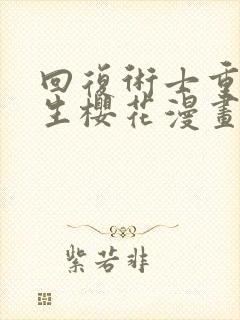 回復術士重
生櫻花漫畫
紫若非